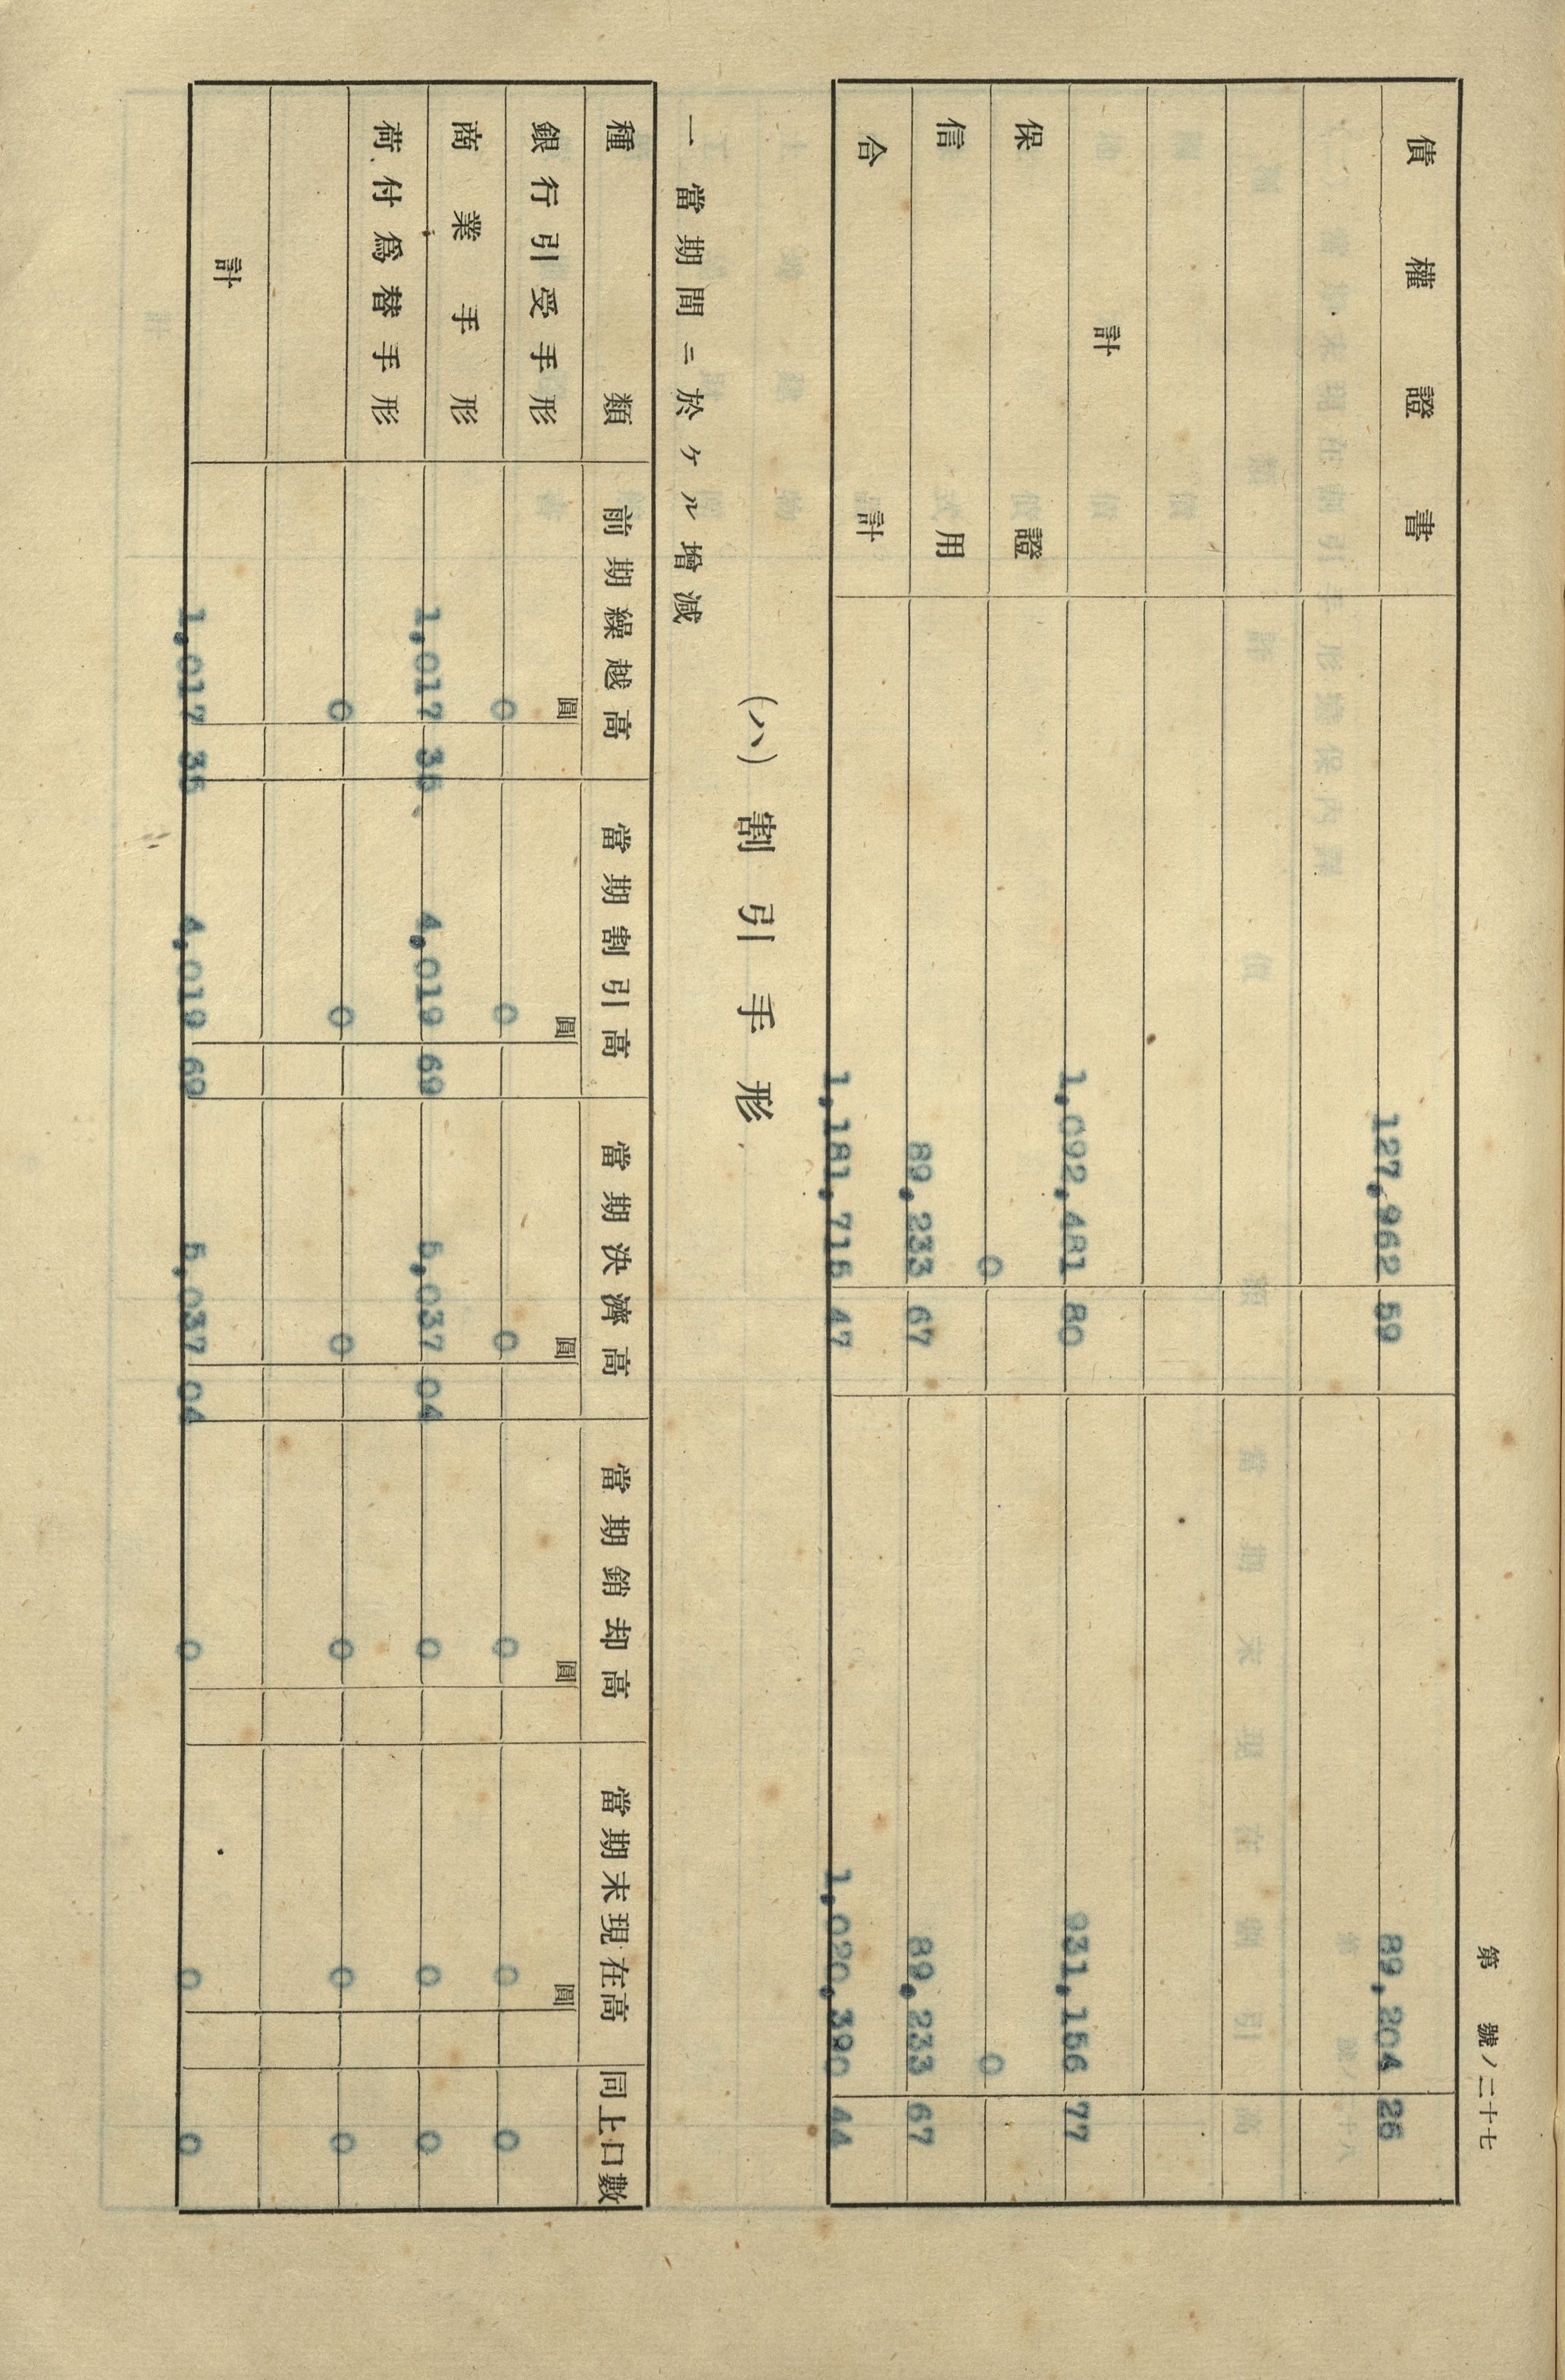 第 號ノ二十七
債權證書 127,962 59 89,204 26
計 1,092,481 80 931,156 77
保證 0 0
信用 89,233 67 89,233 67
合計 1,181,715 47 1,020,390 44
(ハ) 割引手形
一 當期間ニ於ケル增減
種類 前期繰越高 當期割引高 當期決濟高 當期銷却高 當期末現在高 同上口數
圓 圓 圓 圓 圓
銀行引受手形 0 0 0 0 0 0
商業手形 1,017 35 4,019 69 5,037 04 0 0 0
荷付爲替手形 0 0 0 0 0 0
計 1,017 35 4,019 69 5,037 04 0 0 0